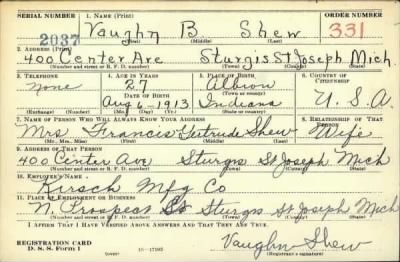 SERIAL NUMBER 1. NAME (Print) ORDER NUMBER
2037 Vaughn B. Shew 331
(First) (Middle) (Last)
2. ADDRESS (Print)
400 Center Ave Sturgis St Joseph Mich.
(Number and street or R. F. D. number) (Town) (County) (State)
3. TELEPHONE 4. AGE IN YEARS 5. PLACE OF BIRTH 6. COUNTRY OF CITIZENSHIP
None 27 Albion
DATE OF BIRTH (Town or county)
Aug 6-1913 Indiana U.S.A.
(Exchange) (Number) (Mo.) (Day) (Yr.) (State or country)
7. NAME OF PERSON WHO WILL ALWAYS KNOW YOUR ADDRESS 8. RELATIONSHIP OF THAT PERSON
Mrs. Francis Gertrude Shew Wife
(Mr., Mrs., Miss) (First) (Middle) (Last)
9. ADDRESS OF THAT PERSON
400 Center Ave Sturgis St Joseph Mich
(Number and street or R. F. D. number) (Town) (County) (State)
10. EMPLOYER'S NAME
Kirsch Mfg Co
11. PLACE OF EMPLOYMENT OR BUSINESS
N. Prospect St Sturgis St Joseph Mich
(Number and street or R. F. D. number) (Town) (County) (State)
I AFFIRM THAT I HAVE VERIFIED ABOVE ANSWERS AND THAT THEY ARE TRUE.
REGISTRATION CARD
D. S. S. Form 1 (over) 16-17105 Vaughn Shew
(Registrant's signature)